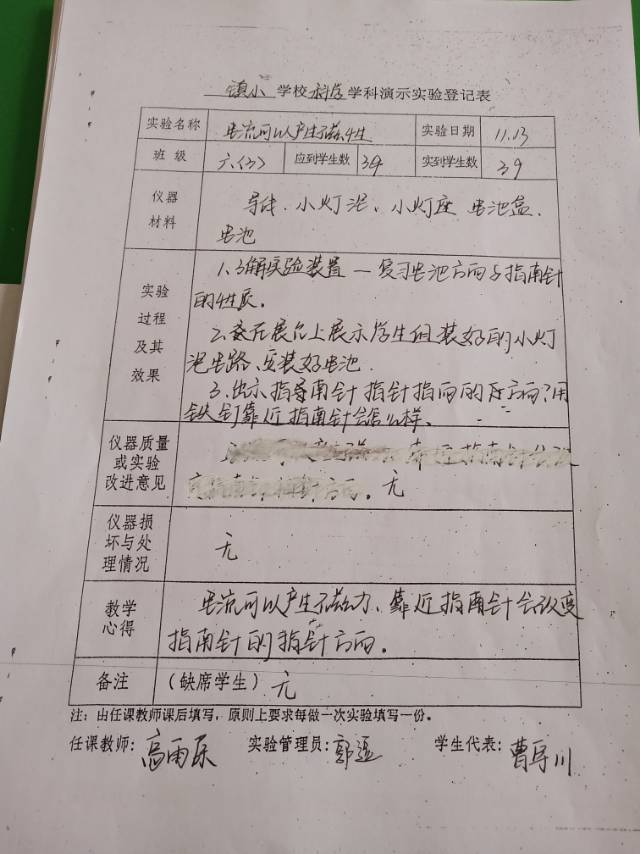 镇小 学校 科学 学科演示实验登记表
实验名称 电流可以产生磁性 实验日期 11.13
班 级 六(3) 应到学生数 39 实到学生数 39
仪器材料 导线、小灯泡、小灯座 电池盒、
电池
实验过程及其效果 1.了解实验装置 — 复习电池方面与指南针
的性质.
2.在展台上展示学生组装好的小灯
泡电路、安装好电池.
3.出示指南针 指针指向的方向?用
铁钉靠近指南针会怎么样.
仪器质量或实验改进意见 靠近指南针会改
变指南针指针方向. 无
仪器损坏与处理情况 无
教学心得 电流可以产生磁力、靠近指南针会改变
指南针的指针方向.
备注 (缺席学生) 无
注: 由任课教师课后填写, 原则上要求每做一次实验填写一份。
任课教师: 高雨乐 实验管理员: 学生代表: